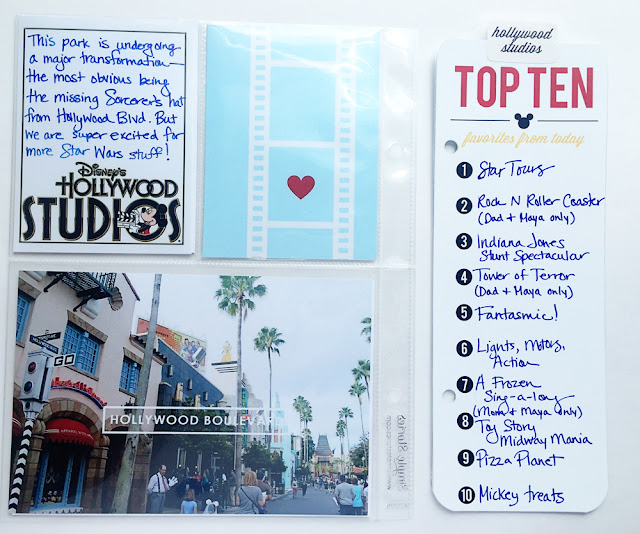 This park is undergoing
a major transformation—
the most obvious being
the missing Sorcerer's hat
from Hollywood Blvd. But
we are super excited for
more Star Wars stuff!
Disney's
HOLLYWOOD
STUDIOS
GO
HOLLYWOOD BOULEVARD
simple stories
hollywood
studios
TOP TEN
favorites from today
1 Star Tours
2 Rock N Roller Coaster
(Dad + Maya only)
3 Indiana Jones
Stunt Spectacular
4 Tower of Terror
(Dad + Maya only)
5 Fantasmic!
6 Lights, Motors,
Action
7 A Frozen
Sing-a-long
(Mom + Maya only)
8 Toy Story
Midway Mania
9 Pizza Planet
10 Mickey treats